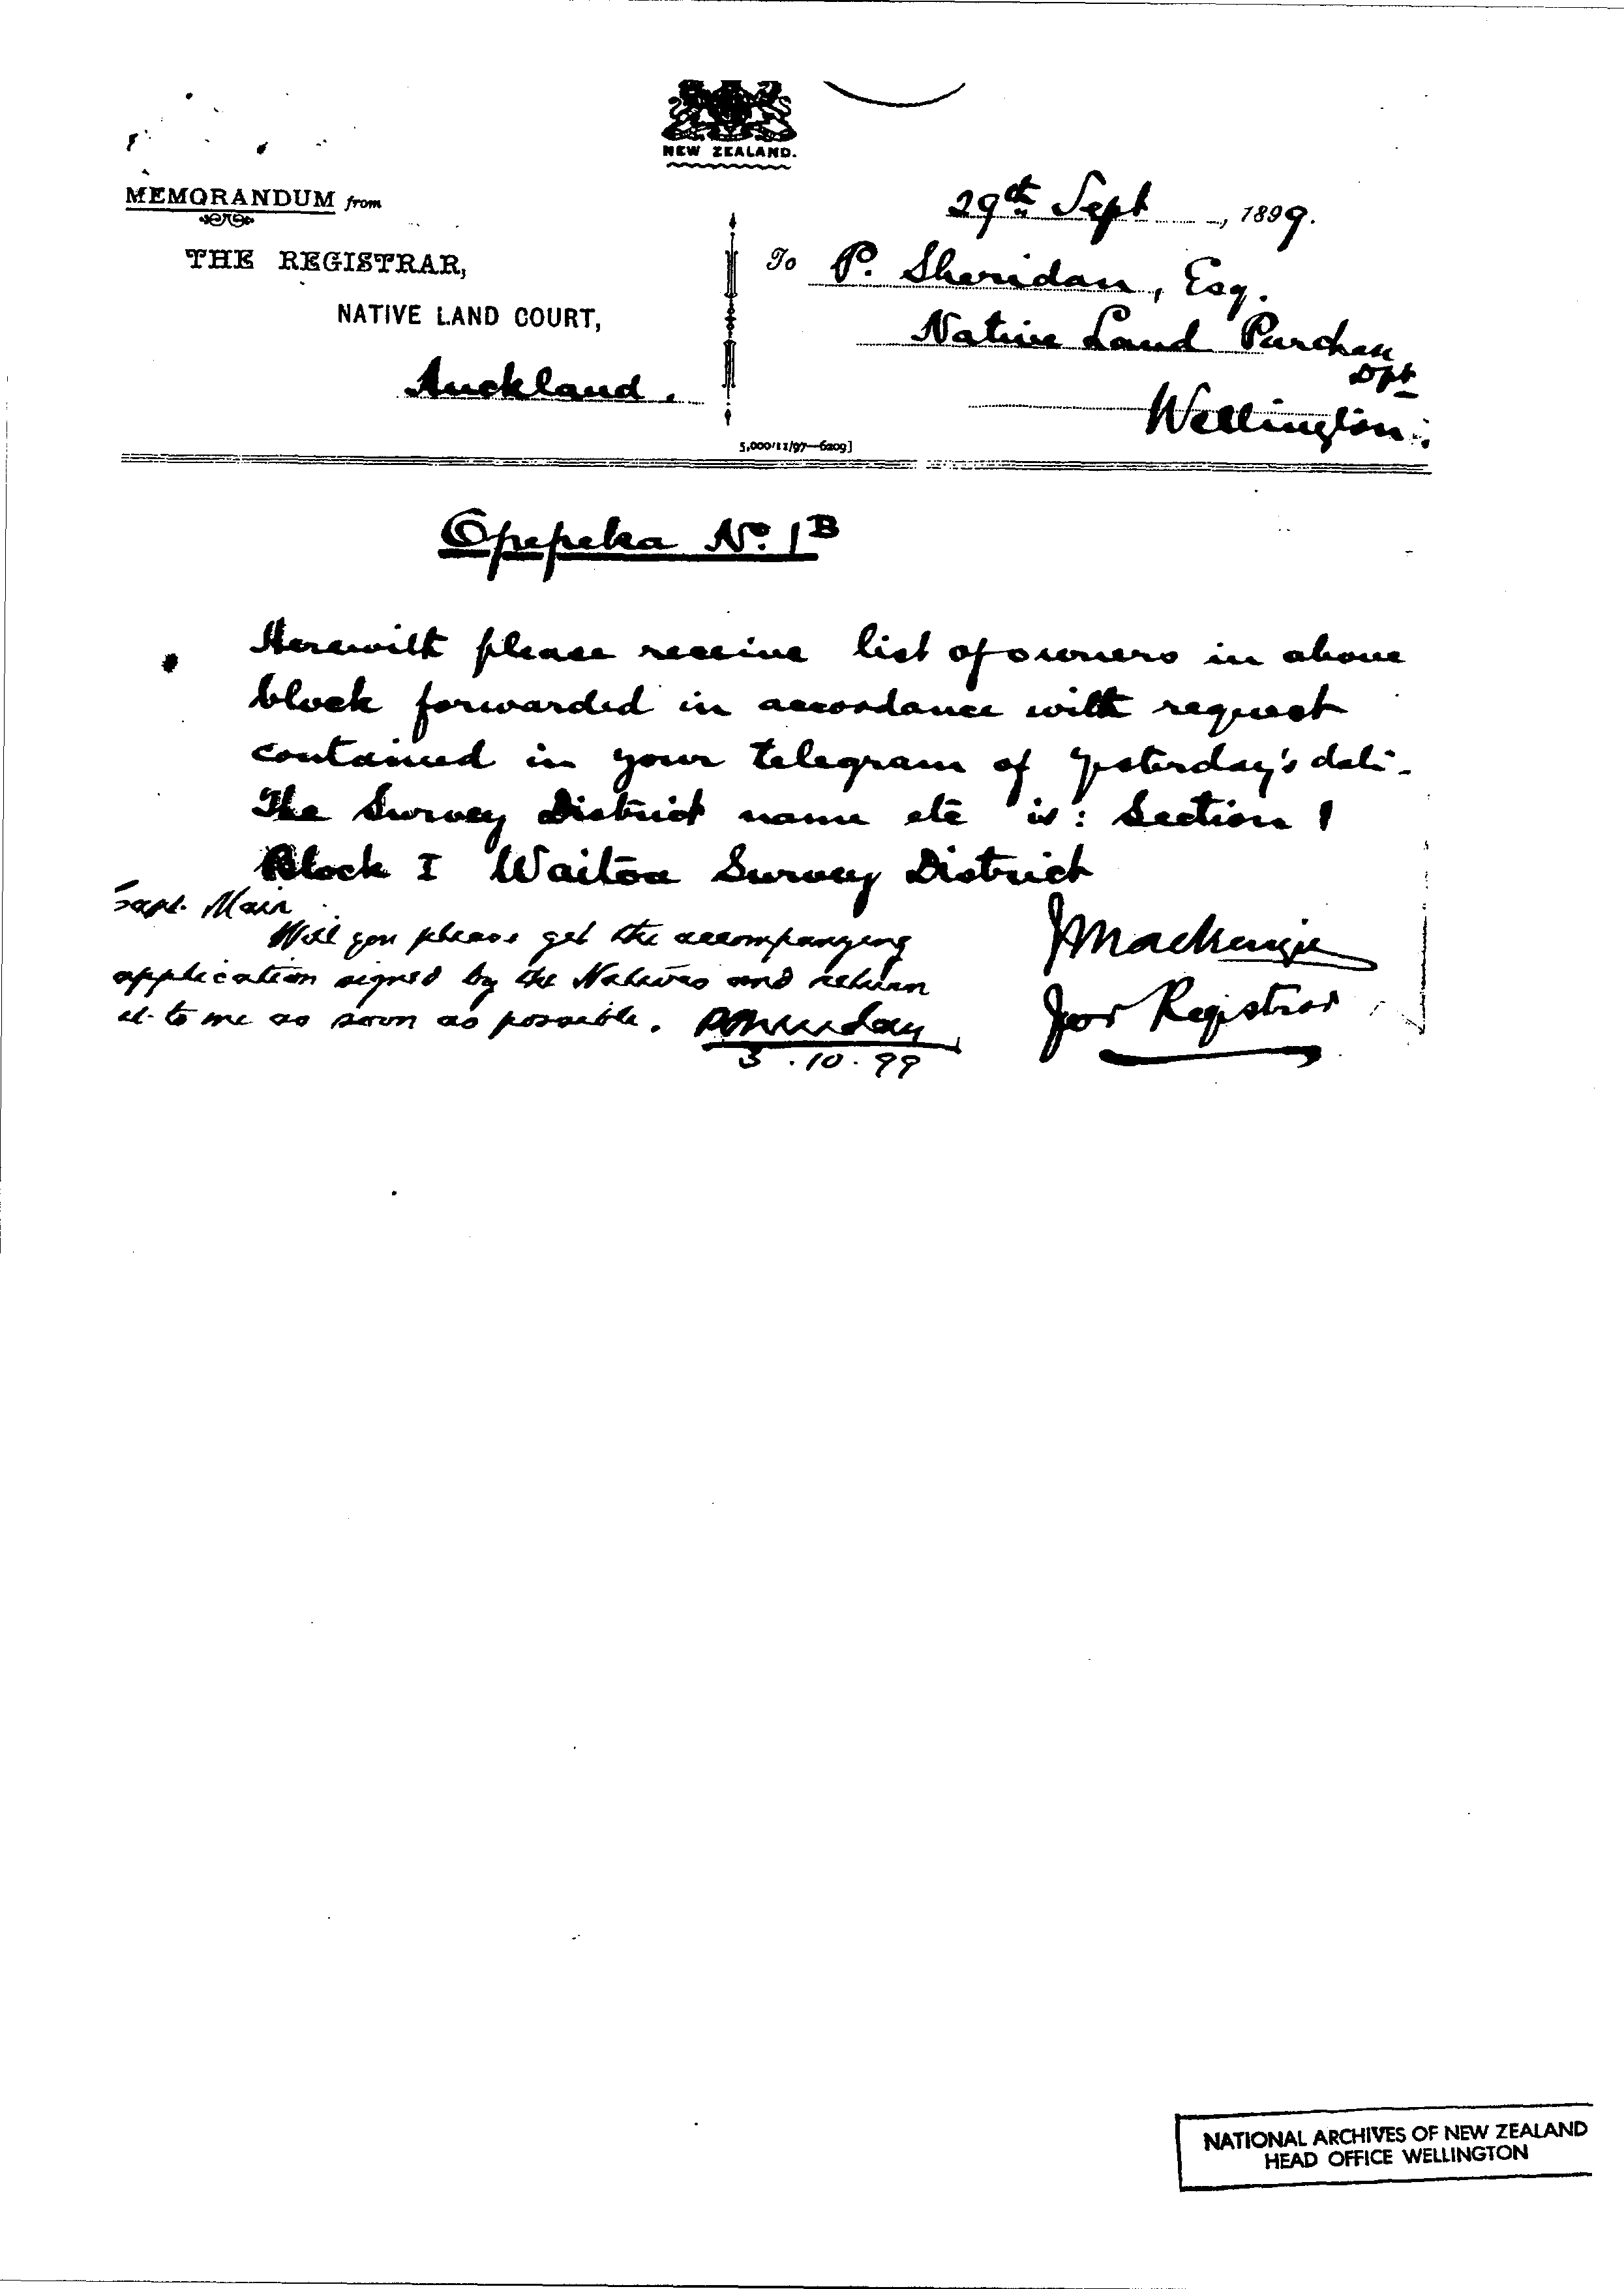 NEW ZEALAND.
MEMORANDUM from
THE REGISTRAR,
NATIVE LAND COURT,
Auckland.
29th Sept, 1899.
To P. Sheridan, Esq.
Native Land Purchase
Dpt
Wellington.
5,000/11/97—6209]
Opepeka No. 1B
Herewith please receive list of owners in above
block forwarded in accordance with request
contained in your telegram of yesterday's date.
The Survey District name etc is: Section 1
Block I Waitoa Survey District
JMackenzie
for Registrar
Capt. Mair
Will you please get the accompanying
application signed by the Natives and return
it to me as soon as possible.
3.10.99
NATIONAL ARCHIVES OF NEW ZEALAND
HEAD OFFICE WELLINGTON